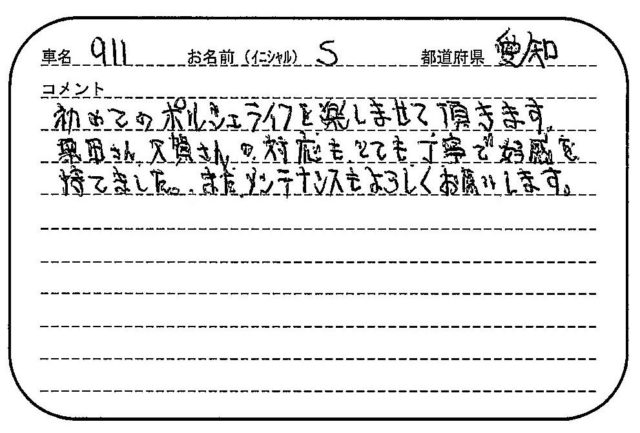 車名 911 お名前（イニシャル） S 都道府県 愛知
コメント
初めてのポルシェライフを楽しませて頂きます。
さん、さんの対応もとても丁寧で好感を
持てました。またメンテナンスもよろしくお願いします。